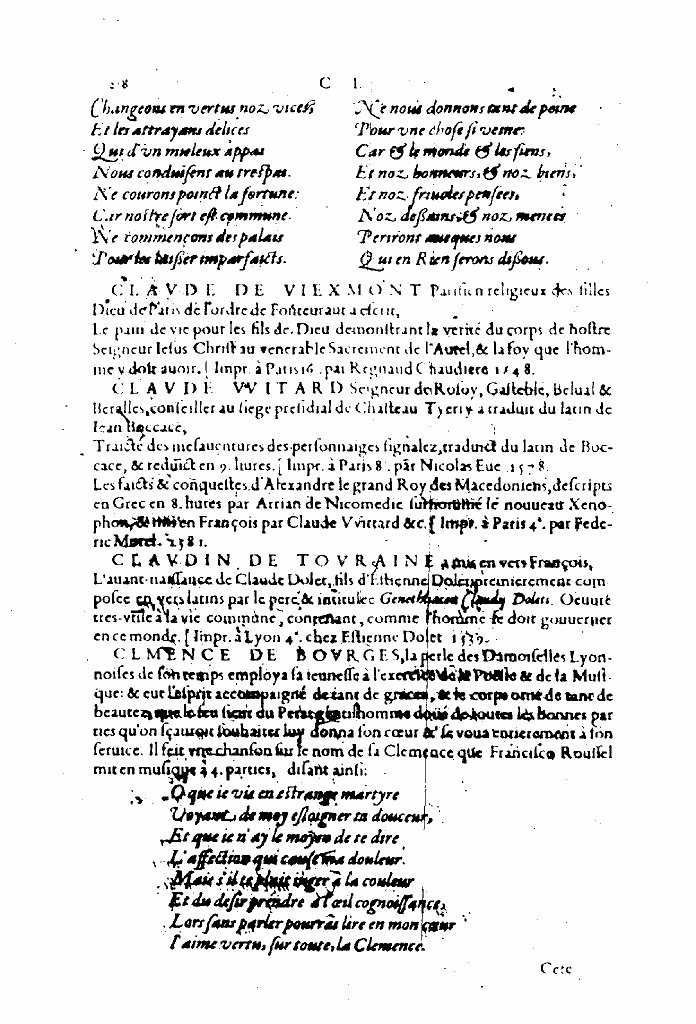 C L
Changeons en vertus noz vices,
Et les attrayans delices
Qui d'vn mieleux appas
Nous conduisent au trespas.
Ne courons poinct la fortune:
Car nostre sort est commune.
Ne commençons des palais
Pour les laisser imparfaicts.
Ne nous donnons tant de peine
Pour vne chose si veine:
Car & le monde & les siens,
Et noz honneurs, & noz biens,
Et noz friuoles pensees,
Noz desseins, & noz menees
Periront auecques nous
Qui en Rien serons dissous.
CLAVDE DE VIEXMONT Parisien religieux des filles
Dieu de Paris de l'ordre de Fonteuraut a escrit,
Le pain de vie pour les fils de Dieu demonstrant la verité du corps de nostre
Seigneur Iesus Christ au venerable Sacrement de l'Autel, & la foy que l'hom-
me y doit auoir. [Impr. à Paris 16. par Regnaud Chaudiere 1548.
CLAVDE VVITARD Seigneur de Rosoy, Gasteble, Belual &
Beralles, conseiller au siege presidial de Chasteau Tyerry a traduit du latin de
Iean Boccace,
Traicté des mesauentures des personnaiges signalez, traduict du latin de Boc-
cace, & reduict en 9. liures. [Impr. à Paris 8°. par Nicolas Eue 1578.
Les faicts & conquestes d'Alexandre le grand Roy des Macedoniens, descripts
en Grec en 8. liures par Arrian de Nicomedie surnommé le nouueau Xeno-
phon, & mis en François par Claude Vvittard &c. [Impr. à Paris 4°. par Fede-
ric Morel. 1581.
CLAVDIN DE TOVRAINE a mis en vers François,
L'auant-naissance de Claude Dolet, fils d'Estienne Dolet, premierement com
posee en vers latins par le pere, & intitulee Genethliacon Claudij Doleti. Oeuure
tres-vtile à la vie commune, contenant, comme l'homme se doit gouuerner
en ce monde. [Impr. à Lyon 4°. chez Estienne Dolet 1539.
CLMENCE DE BOVRGES, la perle des Damoiselles Lyon-
noises de son temps employa sa ieunesse à l'exercice de la Poësie & de la Musi-
que: & eut l'esprit accompaigné de tant de graces, & le corps orné de tant de
beautez, que le feu sieur du Perat gentilhomme doüé de toutes les bonnes par
ties qu'on sçauroit souhaiter luy donna son cœur & se voua entierement à son
seruice. Il feit vne chanson sur le nom de sa Clemence que Francisco Roussel
mit en musique à 4. parties, disant ainsi:
O que ie vis en estrange martyre
Voyant de moy esloigner ta douceur,
Et que ie n'ay le moyen de te dire
L'affection qui cause ma douleur.
Mais s'il te plait iuger à la couleur
Et du desir prendre à l'œil cognoissance,
Lors sans parler pourras lire en mon cœur
I'aime vertu, sur toute, la Clemence.
Cete